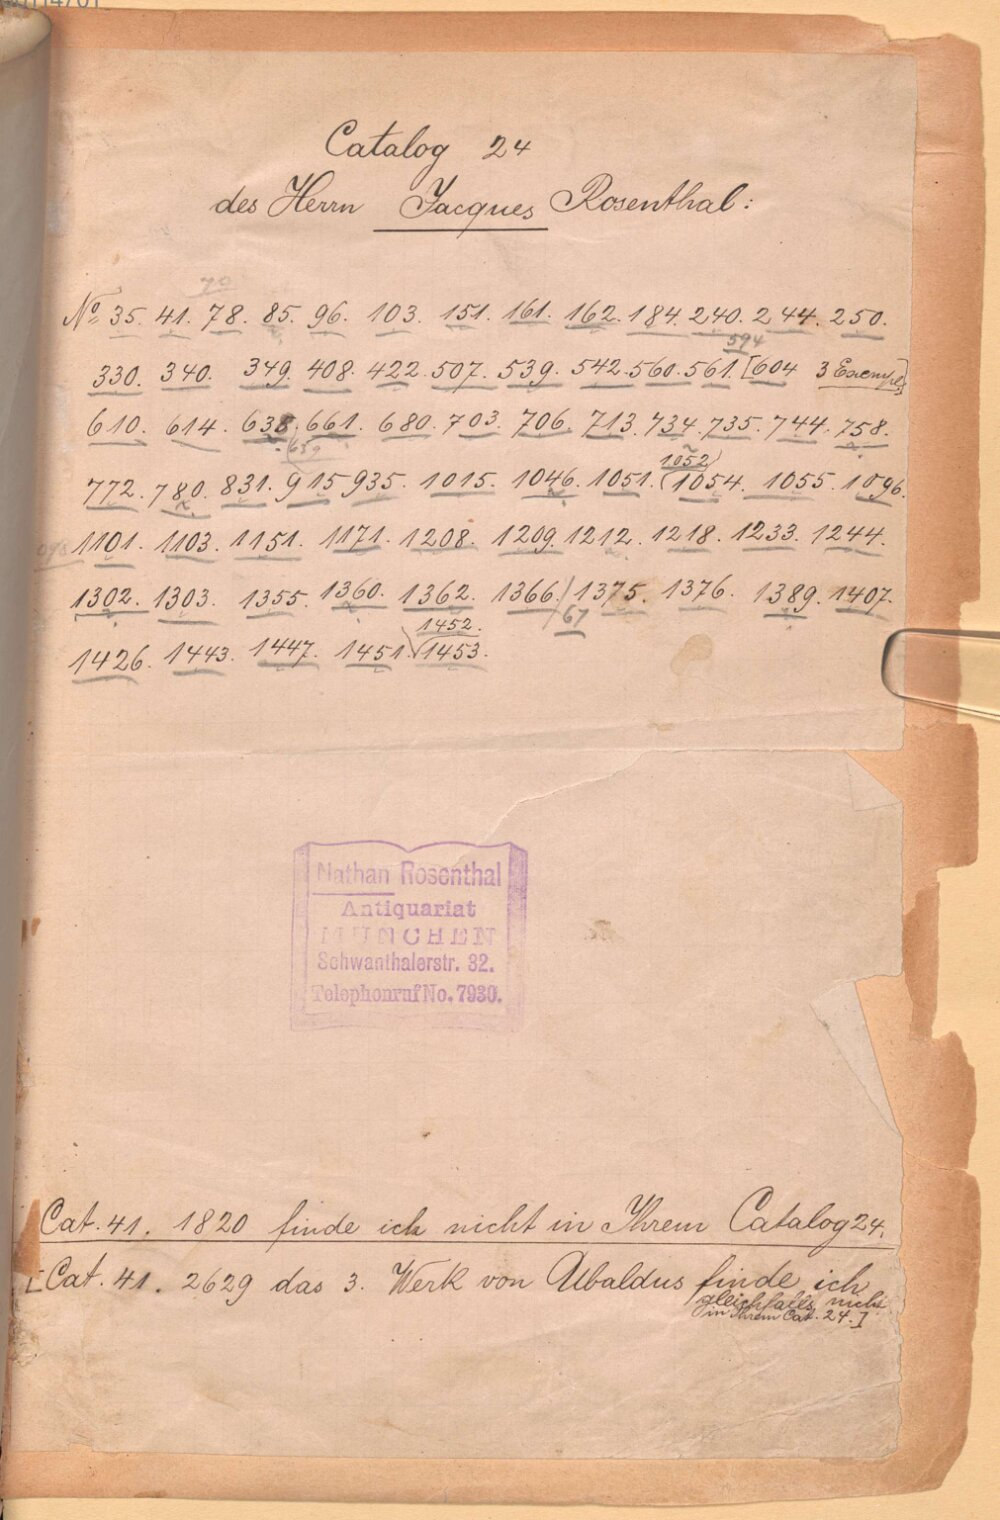 Catalog 24
des Herrn Jacques Rosenthal:
70
No 35. 41. 78. 85. 96. 103. 151. 161. 162. 184. 240. 244. 250.
594
330. 340. 349. 408. 422. 507. 539. 542. 560. 561. [604 3 Exempl.]
610. 614. 638. 661. 680. 703. 706. 713. 734. 735. 744. 758.
659
1052
772. 780. 831. 915 935. 1015. 1046. 1051. (1054. 1055. 1096.
1101. 1103. 1151. 1171. 1208. 1209. 1212. 1218. 1233. 1244.
1302. 1303. 1355. 1360. 1362. 1366. 1375. 1376. 1389. 1407.
67
1452.
1426. 1443. 1447. 1451. 1453.
Nathan Rosenthal
Antiquariat
MÜNCHEN
Schwanthalerstr. 32.
Telephonruf No. 7930.
Cat. 41. 1820 finde ich nicht in Ihrem Catalog 24.
[Cat. 41. 2629 das 3. Werk von Ubaldus finde ich
gleichfalls nicht
in Ihrem Cat. 24.]